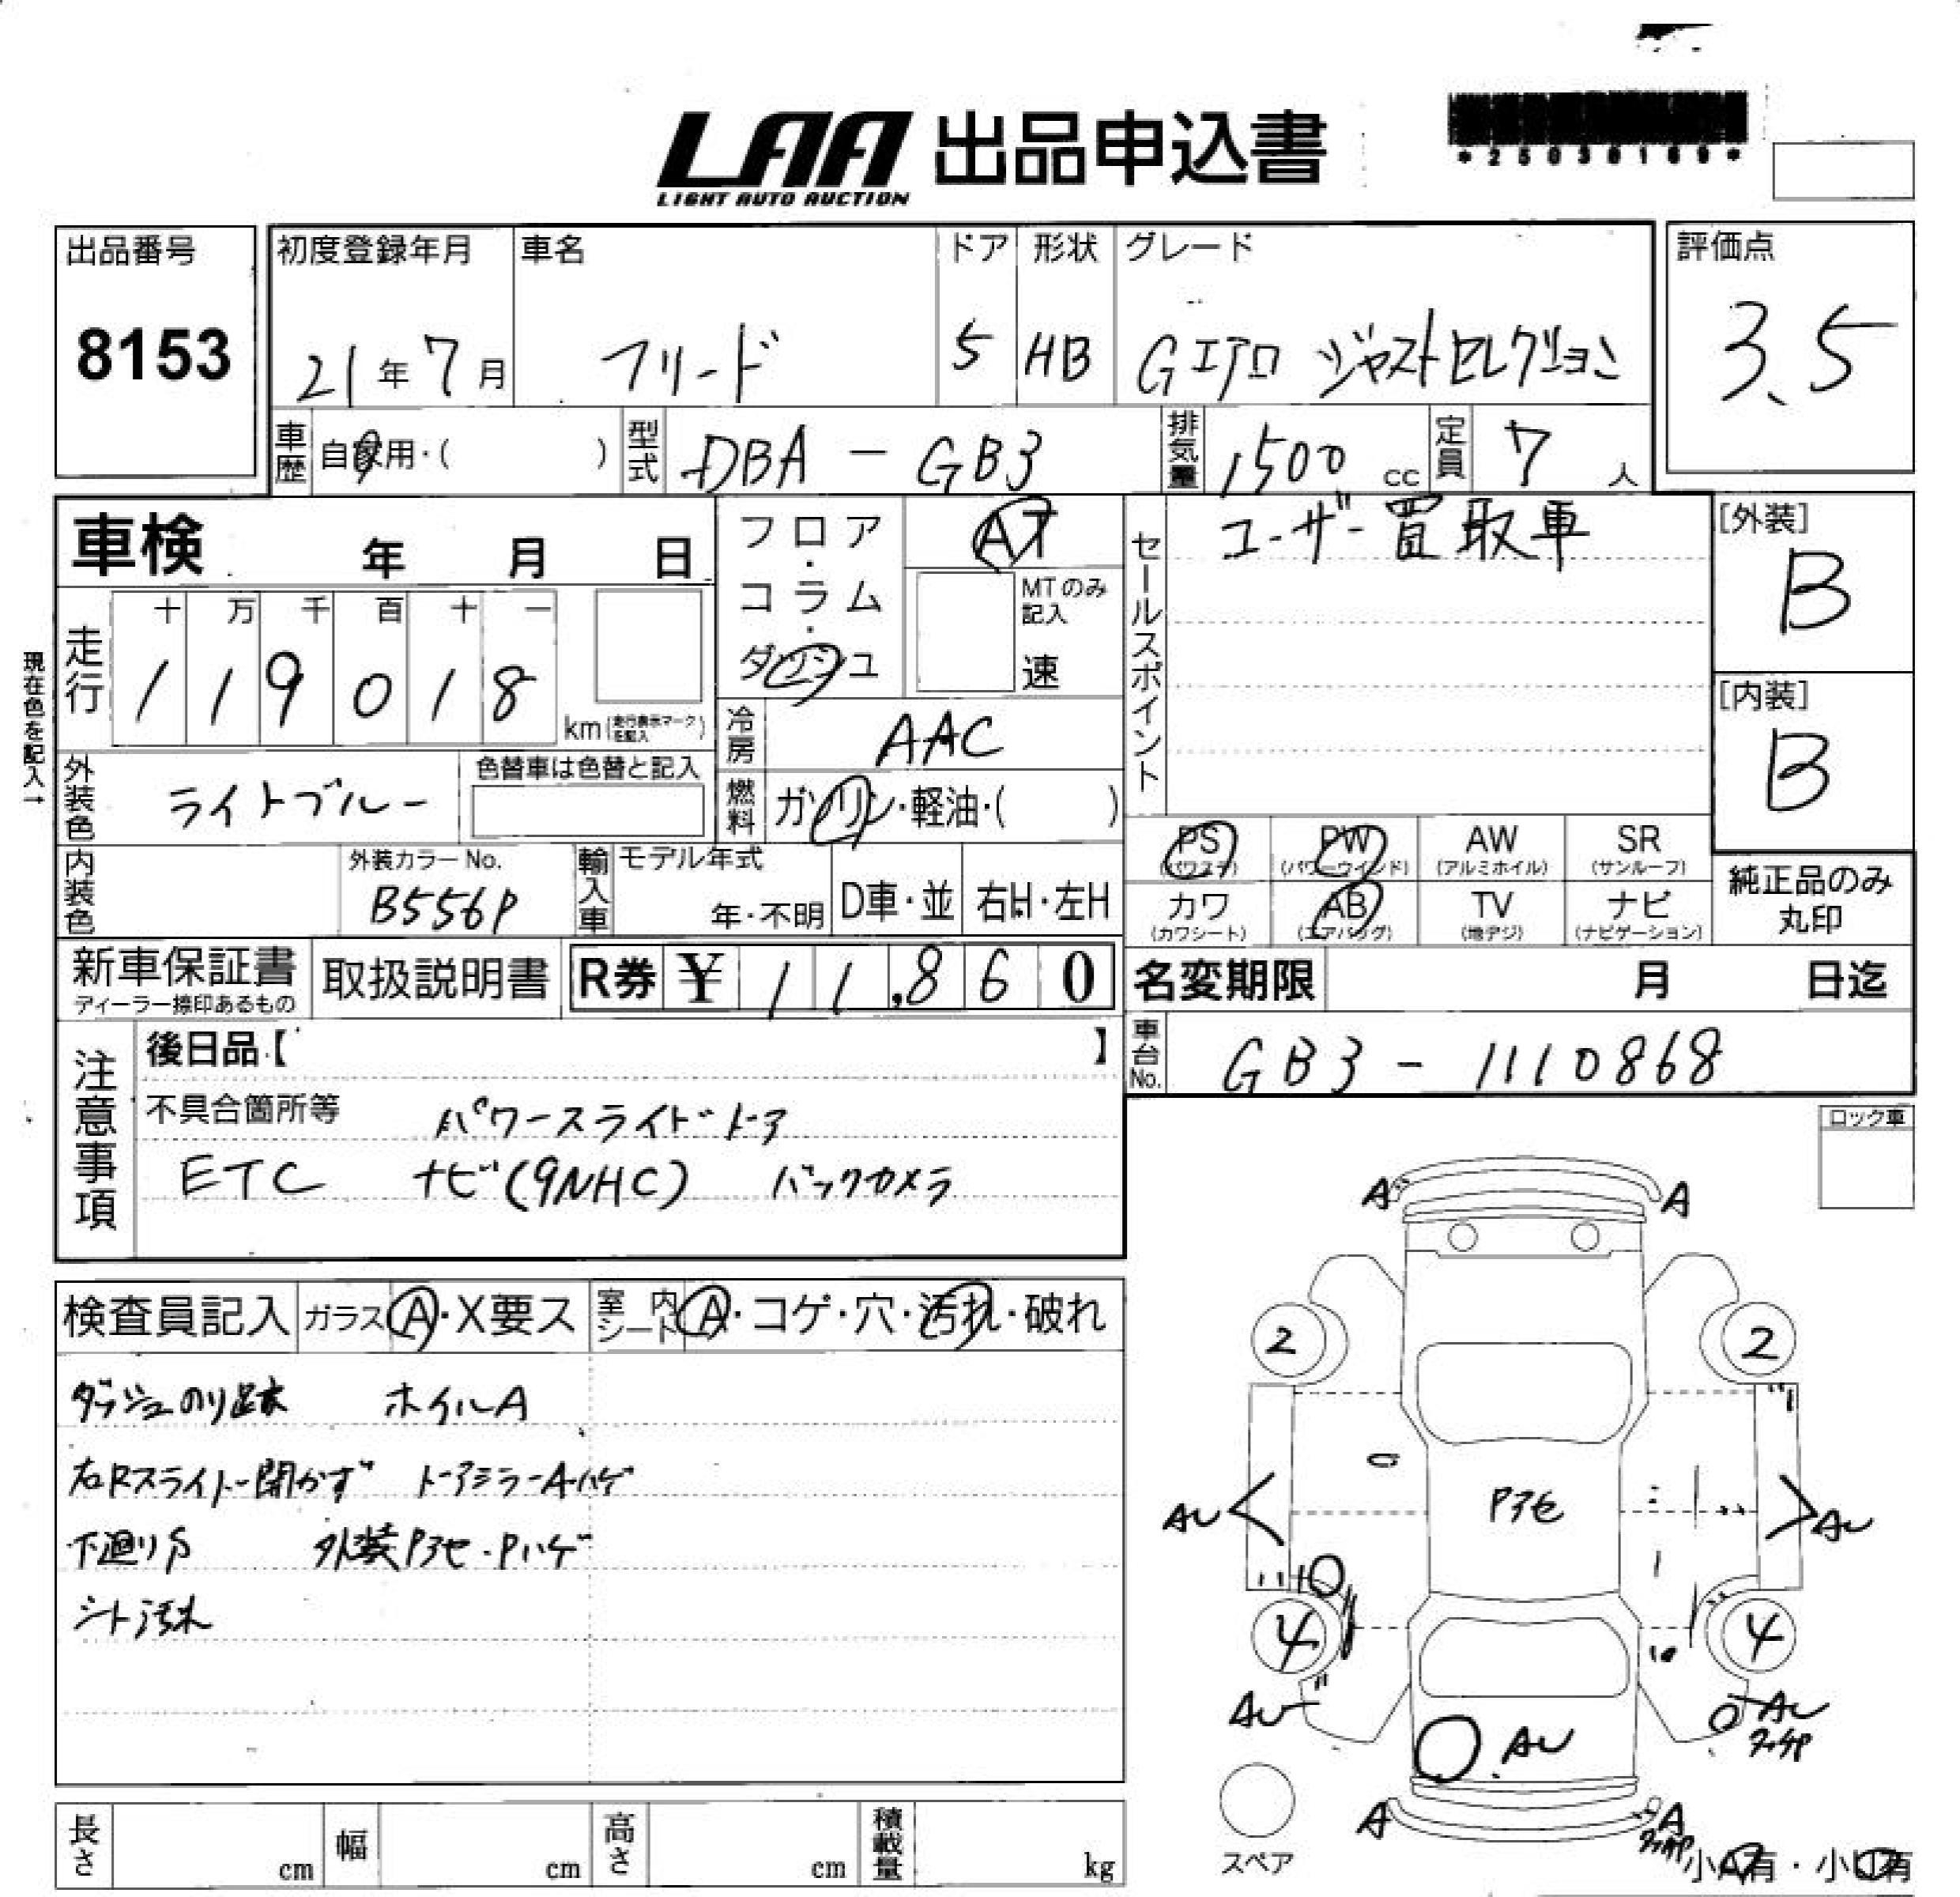 LAA 出品申込書
LIGHT AUTO AUCTION
*25036169*
出品番号
8153
初度登録年月
21年7月
車名
フリード
ドア
5
形状
HB
グレード
Gエアロ ジャストセレクション
評価点
3.5
車歴
自家用・( )
型式
DBA - GB3
排気量
1500 cc
定員
7 人
車検 年 月 日
フロア・コラム・ダッシュ
AT
MTのみ記入
速
セールスポイント
ユーザー買取車
[外装]
B
[内装]
B
現在色を記入→
走行
十 万 千 百 十 一
1 1 9 0 1 8
km(走行表示マークを記入)
冷房
AAC
外装色
ライトブルー
色替車は色替と記入
燃料
ガソリン・軽油・( )
内装色
外装カラーNo.
B556P
輸入車
モデル年式
年・不明
D車・並
右H・左H
PS
(パワステ)
PW
(パワーウインド)
AW
(アルミホイル)
SR
(サンルーフ)
カワ
(カワシート)
AB
(エアバッグ)
TV
(地デジ)
ナビ
(ナビゲーション)
純正品のみ
丸印
新車保証書
ディーラー捺印あるもの
取扱説明書
R券 ¥ 11,860
名変期限 月 日迄
車台No.
GB3 - 1110868
注意事項
後日品【 】
不具合箇所等 パワースライドドア
ETC ナビ(9NHC) バックカメラ
ロック車
検査員記入
ガラス A・X要ス
室内シート A・コゲ・穴・汚れ・破れ
ダッシュのり跡 ホイルA
右Rスライドー開かず ドアミラーA・ハゲ
下廻りS 外装Pアセ・Pハゲ
シート汚れ
A A
2 2
Pアセ
AU AU
4 4
AU AU
AU
A A
スペア
小A有・小U有
長さ cm
幅 cm
高さ cm
積載量 kg